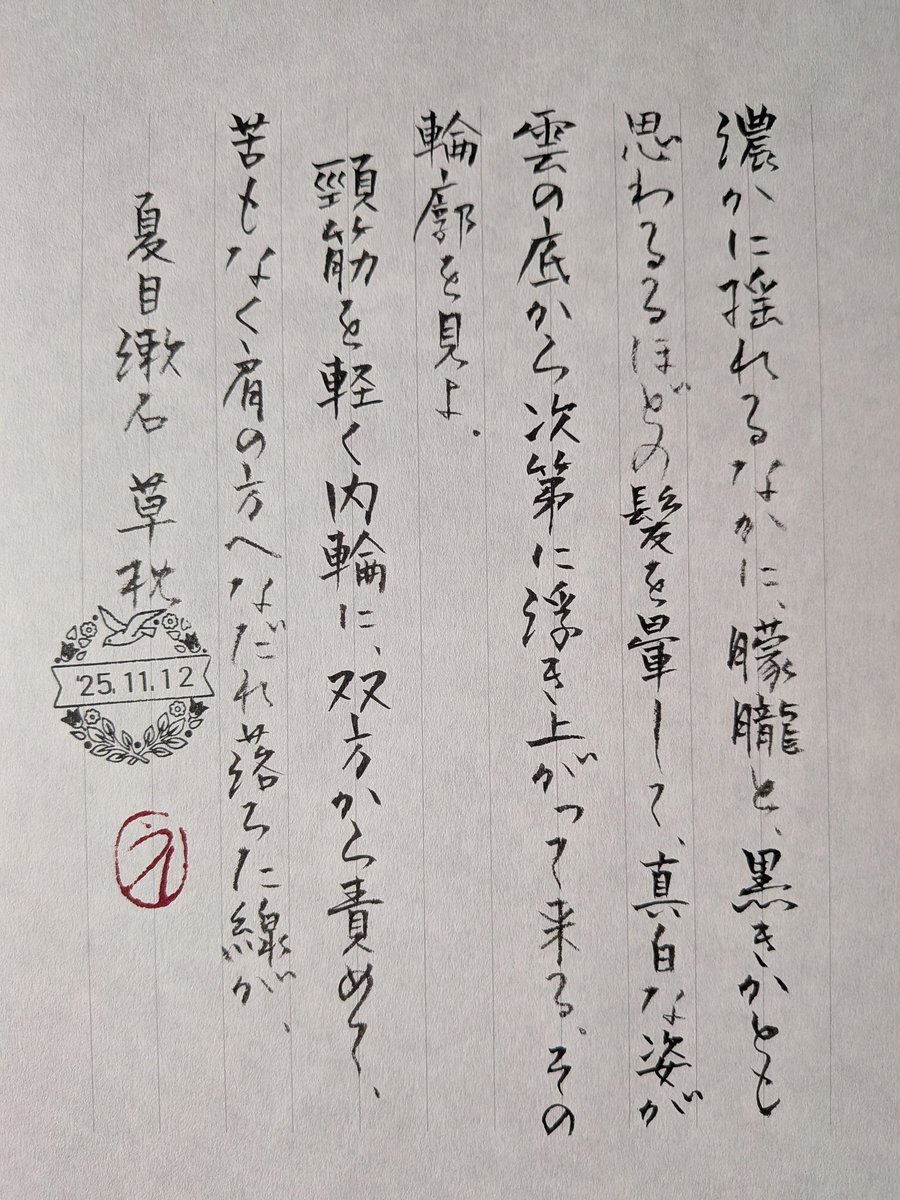 濃かに揺れるなかに、朦朧と、黒きかとも
思わるるほどの髪を暈して、真白な姿が
雲の底から次第に浮き上がって来る。その
輪廓を見よ。
頸筋を軽く内輪に、双方から責めて、
苦もなく肩の方へなだれ落ちた線が、
夏目漱石 草枕
'25.11.12